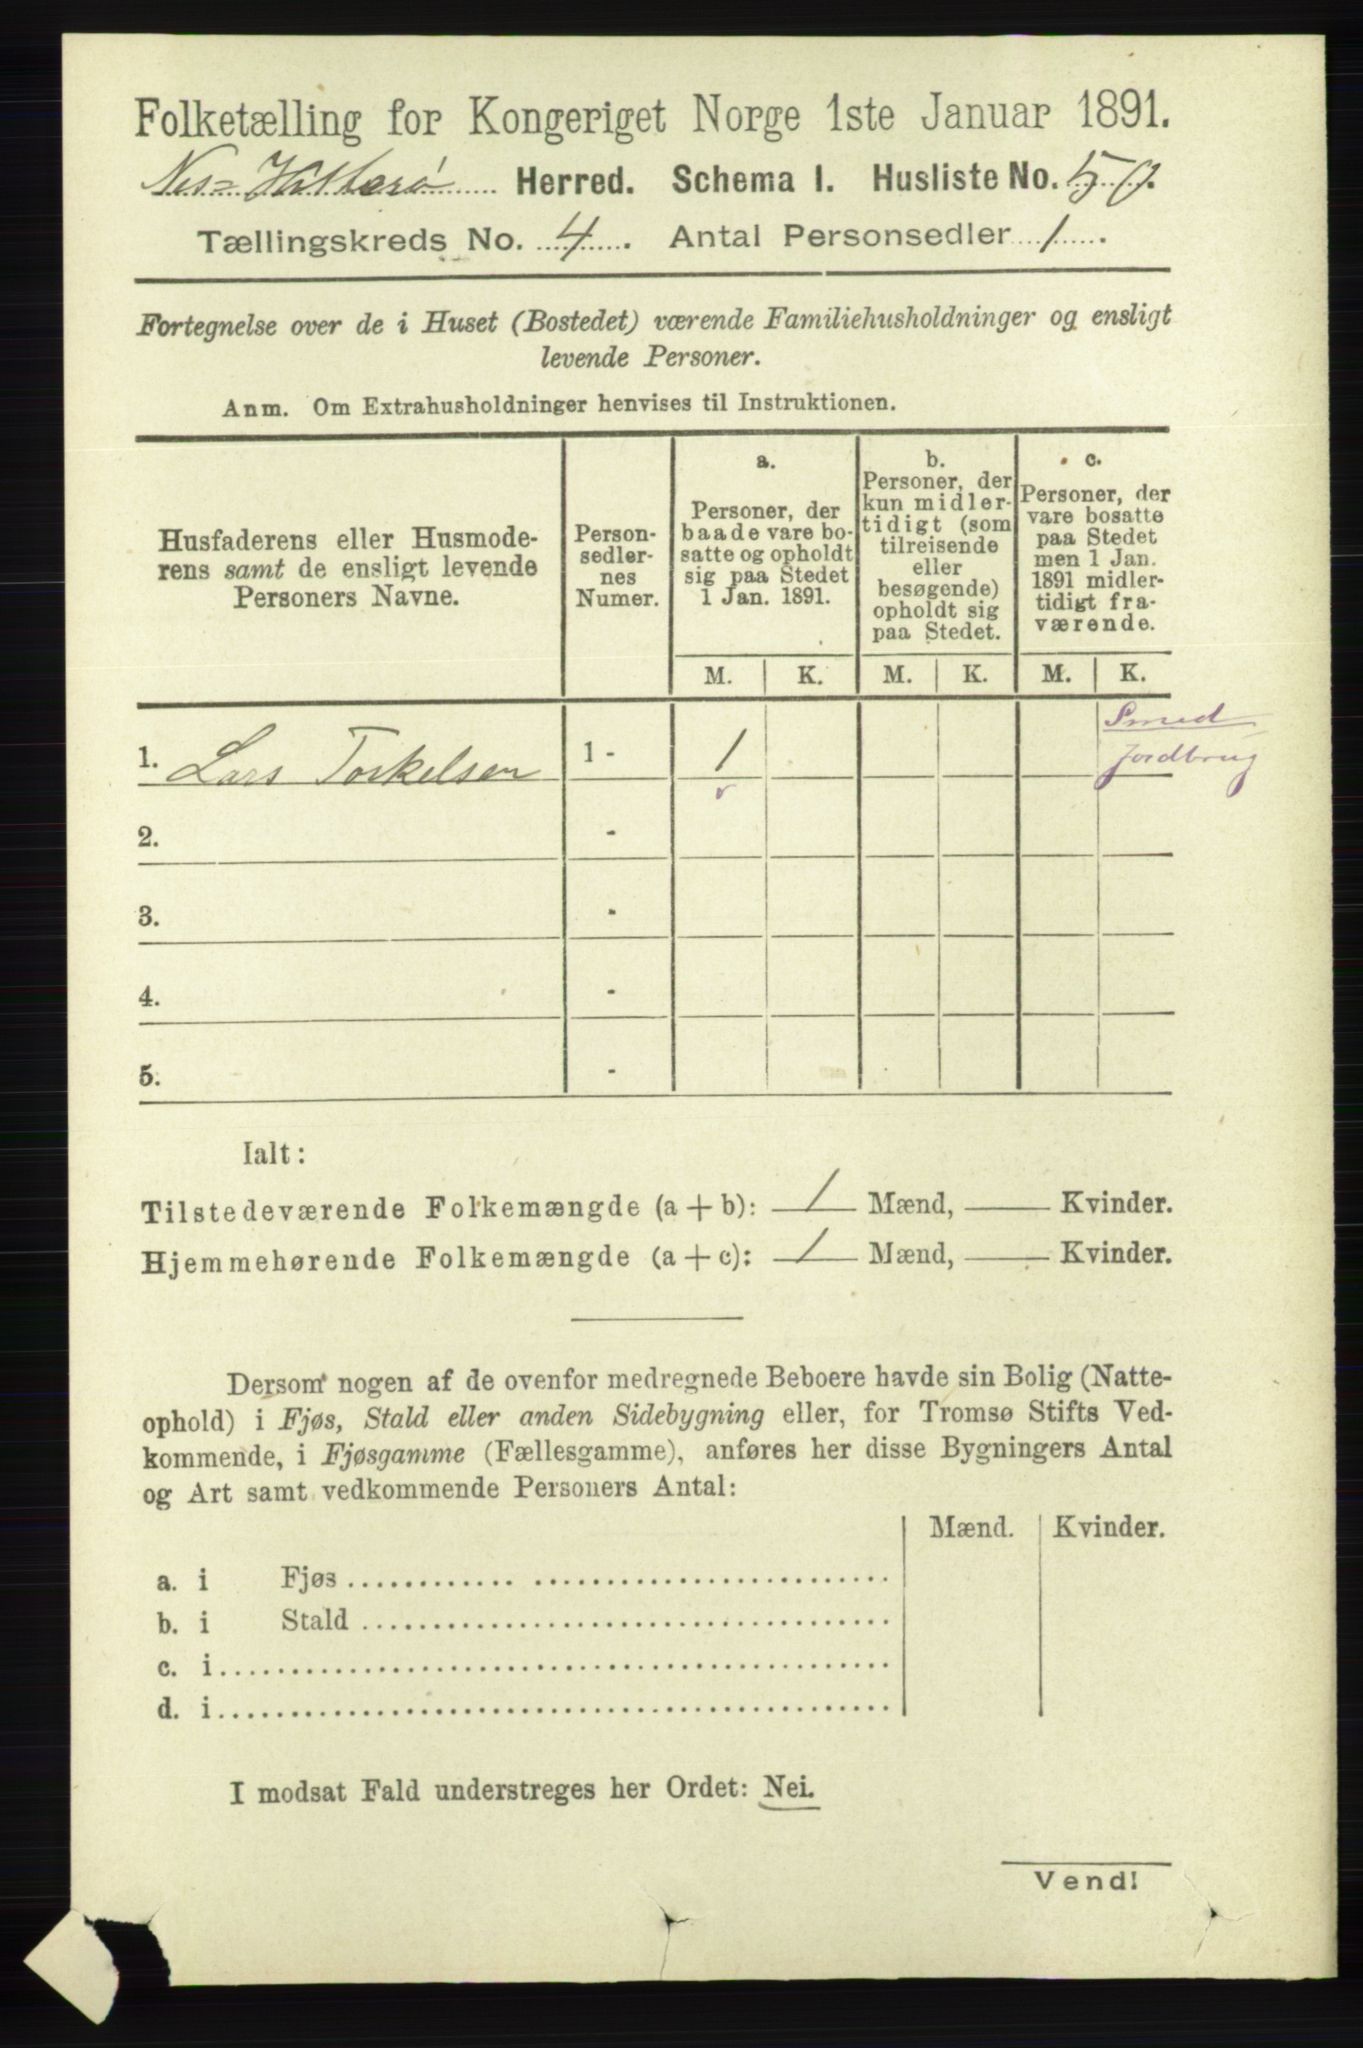 Folketælling for Kongeriget Norge 1ste Januar 1891.
Nes-Hitterø Herred. Schema I. Husliste No. 50.
Tællingskreds No. 4. Antal Personsedler 1.
Fortegnelse over de i Huset (Bostedet) værende Familiehusholdninger og ensligt
levende Personer.
Anm. Om Extrahusholdninger henvises til Instruktionen.
Husfaderens eller Husmode-
rens samt de ensligt levende
Personers Navne.
Person-
sedler-
nes
Numer.
a.
Personer, der
baade vare bo-
satte og opholdt
sig paa Stedet
1 Jan. 1891.
b.
Personer, der
kun midler-
tidigt (som
tilreisende
eller
besøgende)
opholdt sig
paa Stedet.
c.
Personer, der
vare bosatte
paa Stedet
men 1 Jan.
1891 midler-
tidigt fra-
værende.
M. K. M. K. M. K.
Smed
1. Lars Torkelsen 1 - 1 Jordbrug
2. -
3. -
4. -
5. -
Ialt:
Tilstedeværende Folkemængde (a + b): 1 Mænd, — Kvinder.
Hjemmehørende Folkemængde (a + c): 1 Mænd, — Kvinder.
Dersom nogen af de ovenfor medregnede Beboere havde sin Bolig (Natte-
ophold) i Fjøs, Stald eller anden Sidebygning eller, for Tromsø Stifts Ved-
kommende, i Fjøsgamme (Fællesgamme), anføres her disse Bygningers Antal
og Art samt vedkommende Personers Antal:
Mænd. Kvinder.
a. i Fjøs
b. i Stald
c. i
d. i
I modsat Fald understreges her Ordet: Nei.
Vend!